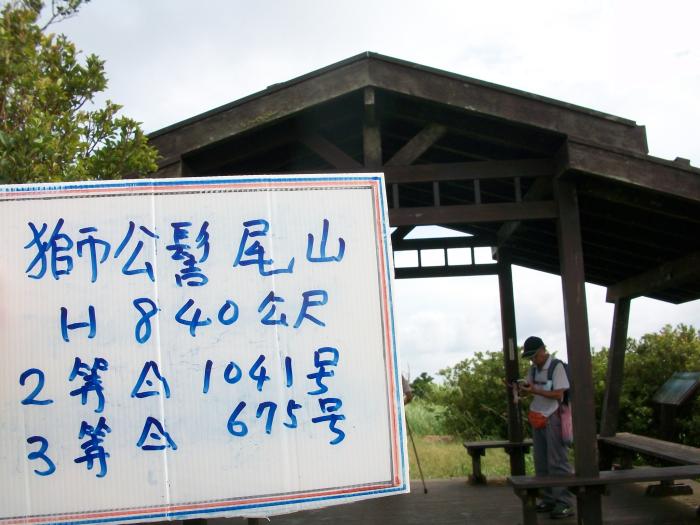 獅公髻尾山
H 840公尺
2等△ 1041号
3等△ 675号